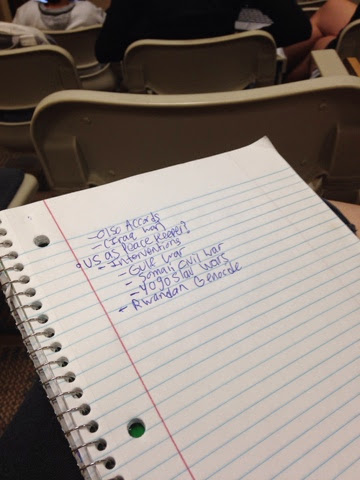 - Olso Accords
- (Iraq War)
° US as Peace Keeper?
- Interventions
- Gulf War
- Somali Civil War
- Yogoslav Wars
- Rwandan Genocide